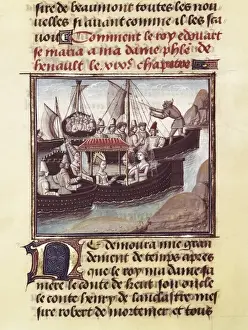 sire de beaumont toutes les nou
uelles si auant comme il les sca
uoit Comment le roy edouart
se maria a ma dame phẽ de
henault le xvoe chapitre
Il demoura mie gran
dement de temps apres
que le roy ma dame sa
mere le conte de kent son oncle
le conte henry de lancastre mes
sire robert de mortemer et tous